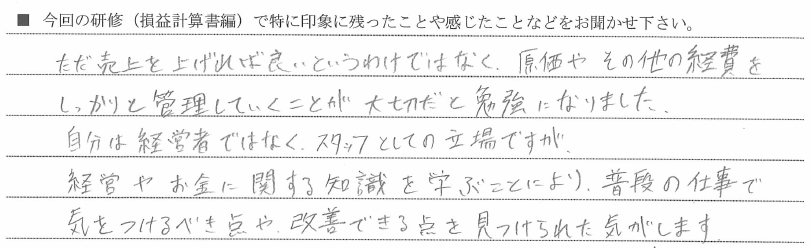 ■ 今回の研修（損益計算書編）で特に印象に残ったことや感じたことなどをお聞かせ下さい。
ただ売上を上げれば良いというわけではなく、原価やその他の経費を
しっかりと管理していくことが大切だと勉強になりました。
自分は経営者ではなく、スタッフとしての立場ですが、
経営やお金に関する知識を学ぶことにより、普段の仕事で
気をつけるべき点や、改善できる点を見つけられた気がします